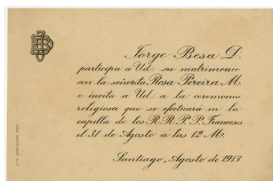 Jorge Besa D.
participa a Ud. su matrimonio
con la señorita Rosa Pereira M.
e invita a Ud. a la ceremonia
religiosa que se efectuará en la
capilla de los R.R. P.P. Franceses
el 31 de Agosto a las 12 M.
Santiago, Agosto de 1913